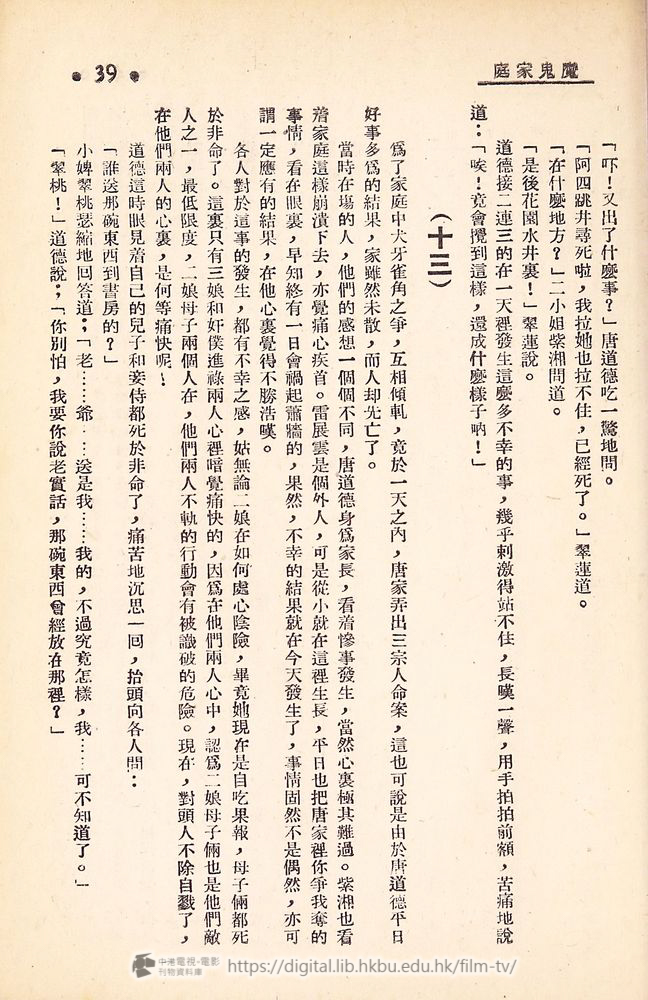 魔鬼家庭
• 39 •
「吓！又出了什麼事？」唐道德吃一驚地問。
「阿四跳井尋死啦，我拉她也拉不住，已經死了。」翠蓮道。
「在什麼地方？」二小姐紫湘問道。
「是後花園水井裏！」翠蓮說。
道德接二連三的在一天裡發生這麼多不幸的事，幾乎刺激得站不住，長嘆一聲，用手拍拍前額，苦痛地說
道：「唉！竟會攪到這樣，還成什麼樣子吶！」
（十三）
爲了家庭中犬牙雀角之爭，互相傾軋，竟於一天之內，唐家弄出三宗人命案，這也可說是由於唐道德平日
好事多爲的結果，家雖然未散，而人却先亡了。
當時在塲的人，他們的感想一個個不同，唐道德身爲家長，看着慘事發生，當然心裏極其難過。紫湘也看
着家庭這樣崩潰下去，亦覺痛心疾首。雷展雲是個外人，可是從小就在這裡生長，平日也把唐家裡你爭我奪的
事情，看在眼裏，早知終有一日會禍起蕭牆的，果然，不幸的結果就在今天發生了，事情固然不是偶然，亦可
謂一定應有的結果，在他心裏覺得不勝浩嘆。
各人對於這事的發生，都有不幸之感，姑無論二娘在如何處心陰險，畢竟她現在是自吃果報，母子倆都死
於非命了。這裏只有三娘和奸僕進祿兩人心裡暗覺痛快的，因爲在他們兩人心中，認爲二娘母子倆也是他們敵
人之一，最低限度，二娘母子兩個人在，他們兩人不軌的行動會有被識破的危險。現在，對頭人不除自戮了，
在他們兩人的心裏，是何等痛快呢！
道德這時眼見着自己的兒子和妾侍都死於非命了，痛苦地沉思一回，抬頭向各人問：
「誰送那碗東西到書房的？」
小婢翠桃瑟縮地回答道：「老……爺……送是我……我的，不過究竟怎樣，我……可不知道了。」
「翠桃！」道德說；「你別怕，我要你說老實話，那碗東西曾經放在那裡？」
中港電視-電影
刊物資料庫
https://digital.lib.hkbu.edu.hk/film-tv/